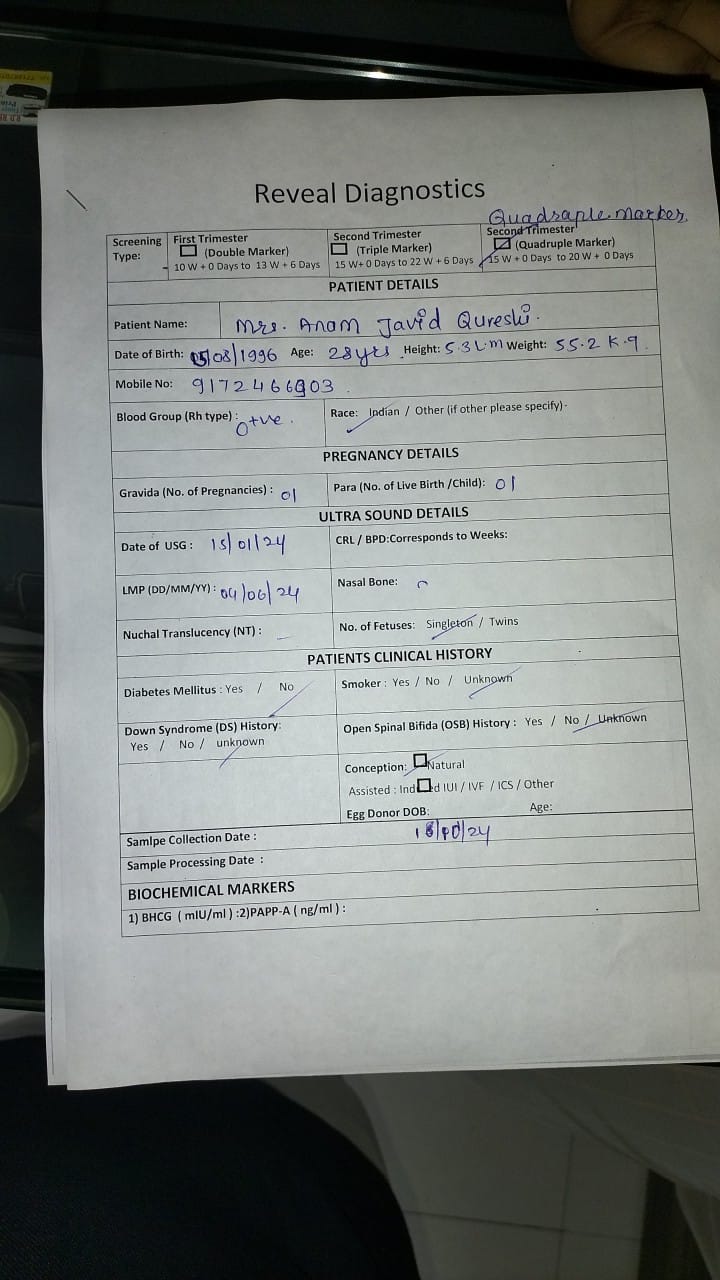 Reveal Diagnostics
Quadraple Marker.
Screening Type:
First Trimester
(Double Marker)
10 W + 0 Days to 13 W + 6 Days
Second Trimester
(Triple Marker)
15 W+ 0 Days to 22 W + 6 Days
Second Trimester
(Quadruple Marker)
15 W + 0 Days to 20 W + 0 Days
PATIENT DETAILS
Patient Name: Mrs. Anam Javid Qureshi.
Date of Birth: 05/08/1996 Age: 28yrs Height: 5.3 Weight: 55.2 K.g.
Mobile No: 9172466903
Blood Group (Rh type) : O+ve. Race: Indian / Other (if other please specify)-
PREGNANCY DETAILS
Gravida (No. of Pregnancies) : 01 Para (No. of Live Birth /Child): 01
ULTRA SOUND DETAILS
Date of USG : 15/01/24 CRL / BPD:Corresponds to Weeks:
LMP (DD/MM/YY) : 04/06/24 Nasal Bone:
Nuchal Translucency (NT) : — No. of Fetuses: Singleton / Twins
PATIENTS CLINICAL HISTORY
Diabetes Mellitus : Yes / No Smoker : Yes / No / Unknown
Down Syndrome (DS) History: Open Spinal Bifida (OSB) History : Yes / No / Unknown
Yes / No / unknown
Conception: Natural
Assisted : IUI / IVF / ICS / Other
Egg Donor DOB: Age:
Samlpe Collection Date :
Sample Processing Date :
BIOCHEMICAL MARKERS
1) BHCG ( mIU/ml ) :2)PAPP-A ( ng/ml ) :